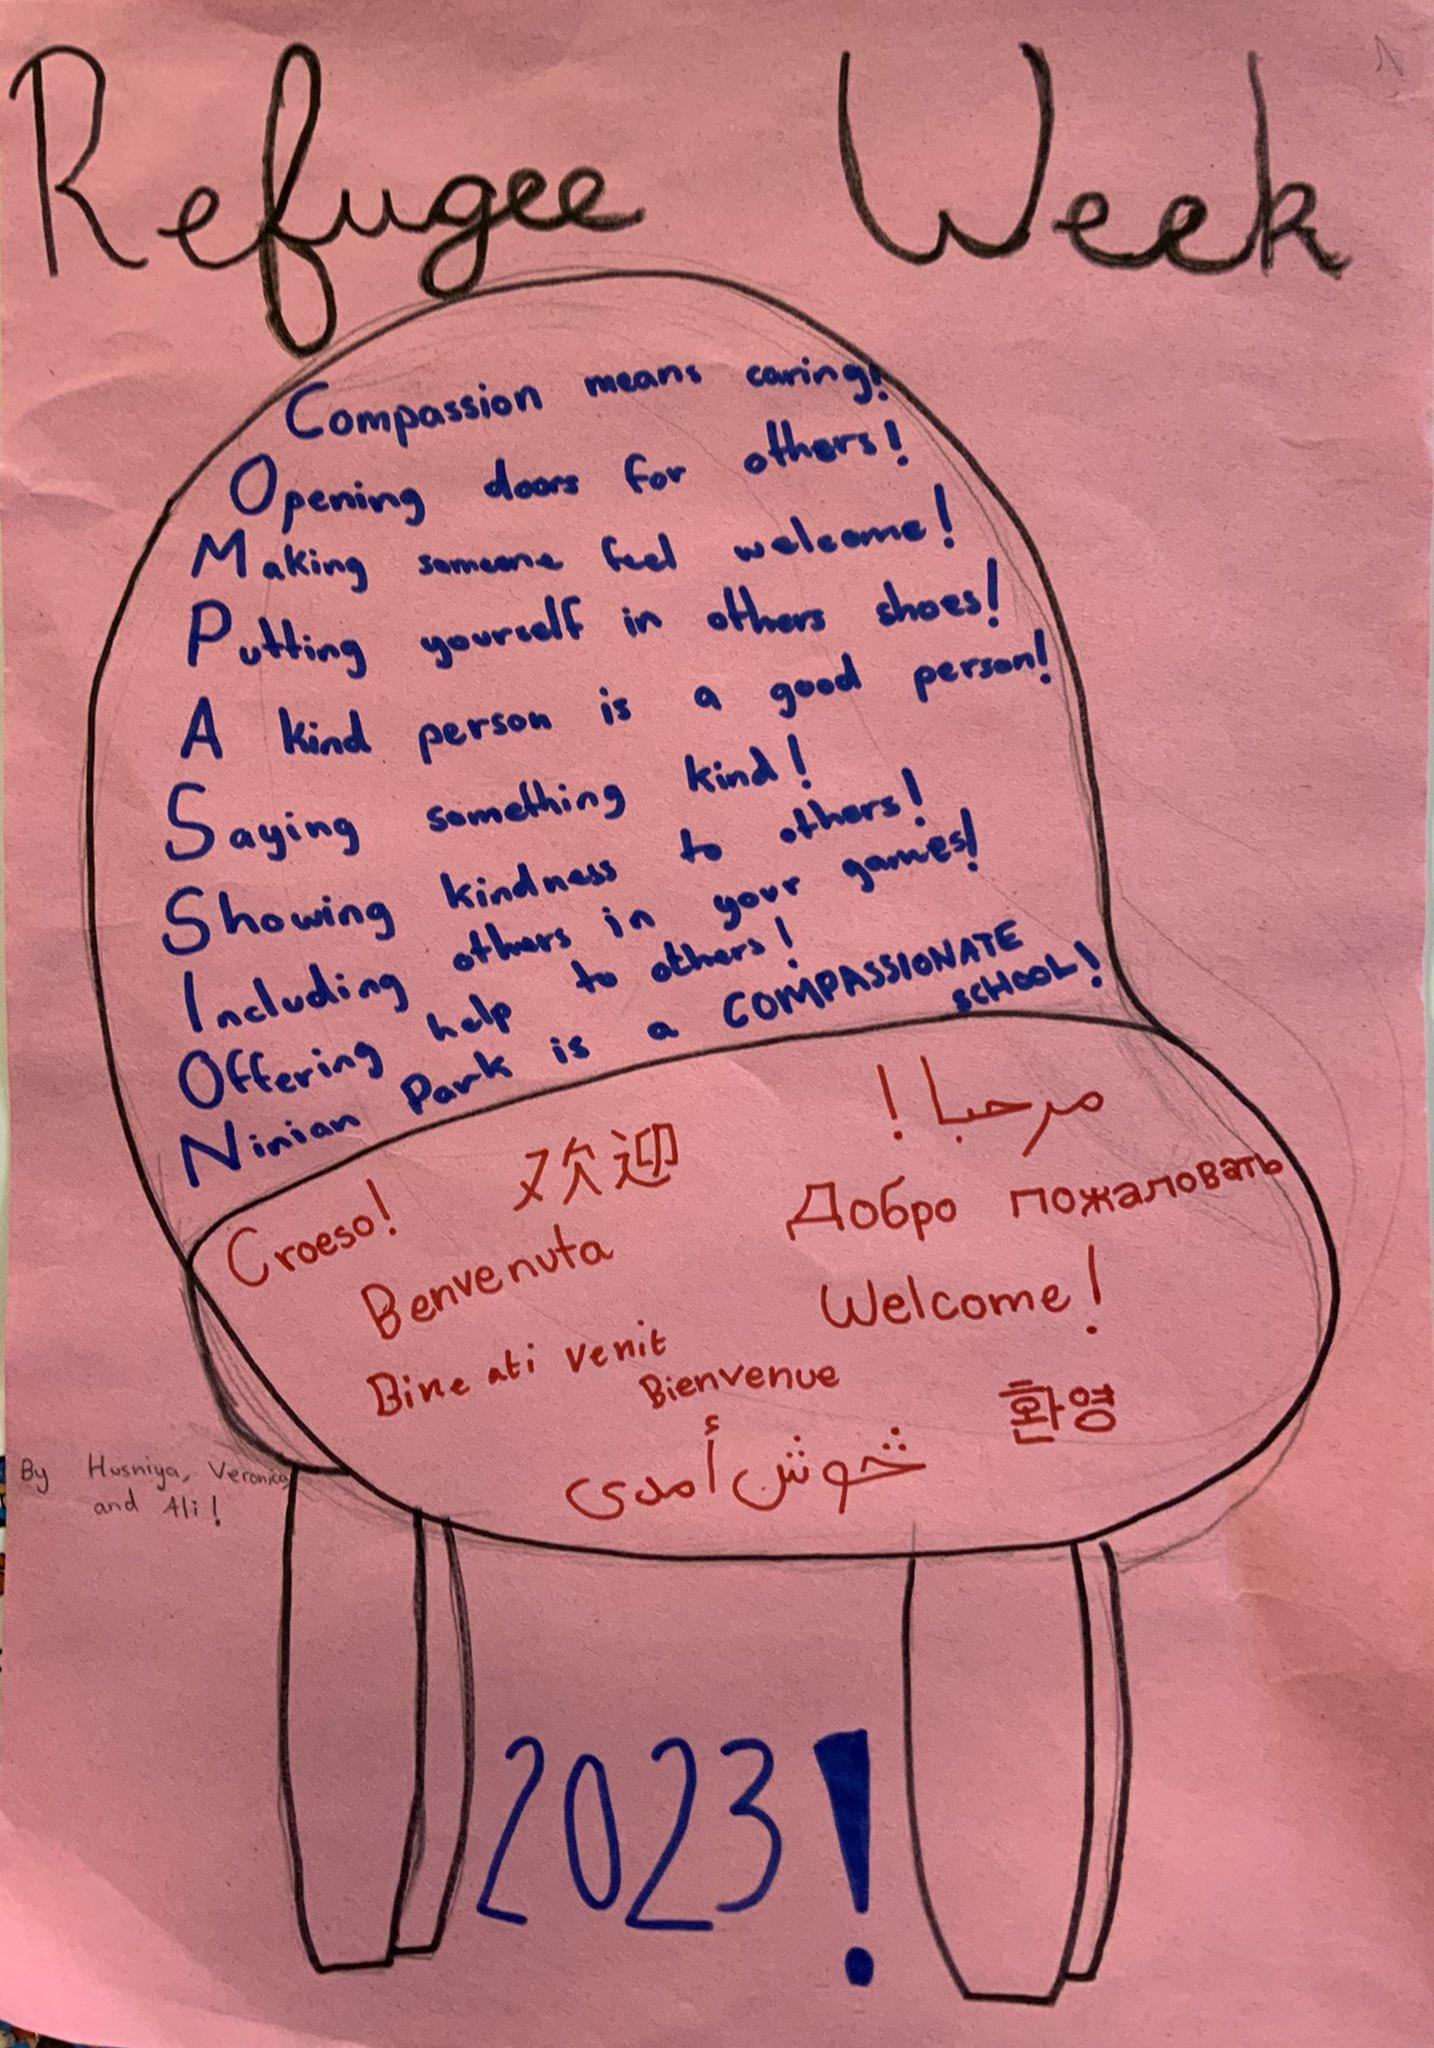 Refugee Week
Compassion means caring!
Opening doors for others!
Making someone feel welcome!
Putting yourself in others shoes!
A kind person is a good person!
Saying something kind!
Showing kindness to others!
Including others in your games!
Offering help to others!
Ninian Park is a COMPASSIONATE
SCHOOL!
مرحبا!
欢迎
Croeso!
Добро пожаловать
Benvenuta
Welcome!
Bine ati venit
Bienvenue
환영
خوش أمدی
By Husniya, Veronica,
and Ali!
2023!